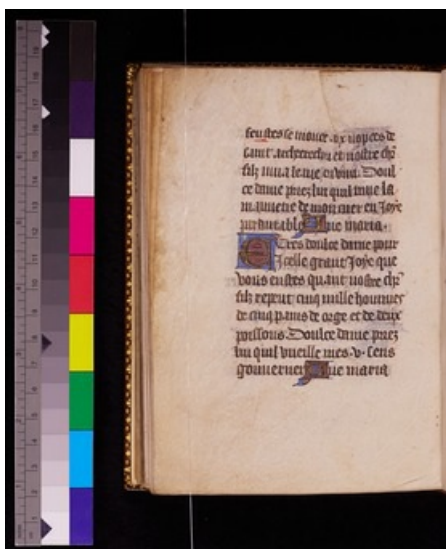 feustes se
saint et vostre chr̄
filz mua le vin. Doul
ce dame priez lui quil mue la
maniere de mon cuer en Joye
pardurable Aue maria.
E tres doulce dame pour
Icelle grant Joye que
vous eustes quant vostre chr̄
filz reput cinq mille hommes
de cinq pains de orge et de deux
poissons. Doulce dame priez
lui quil vueille mes .v. sens
gouuerner Aue maria